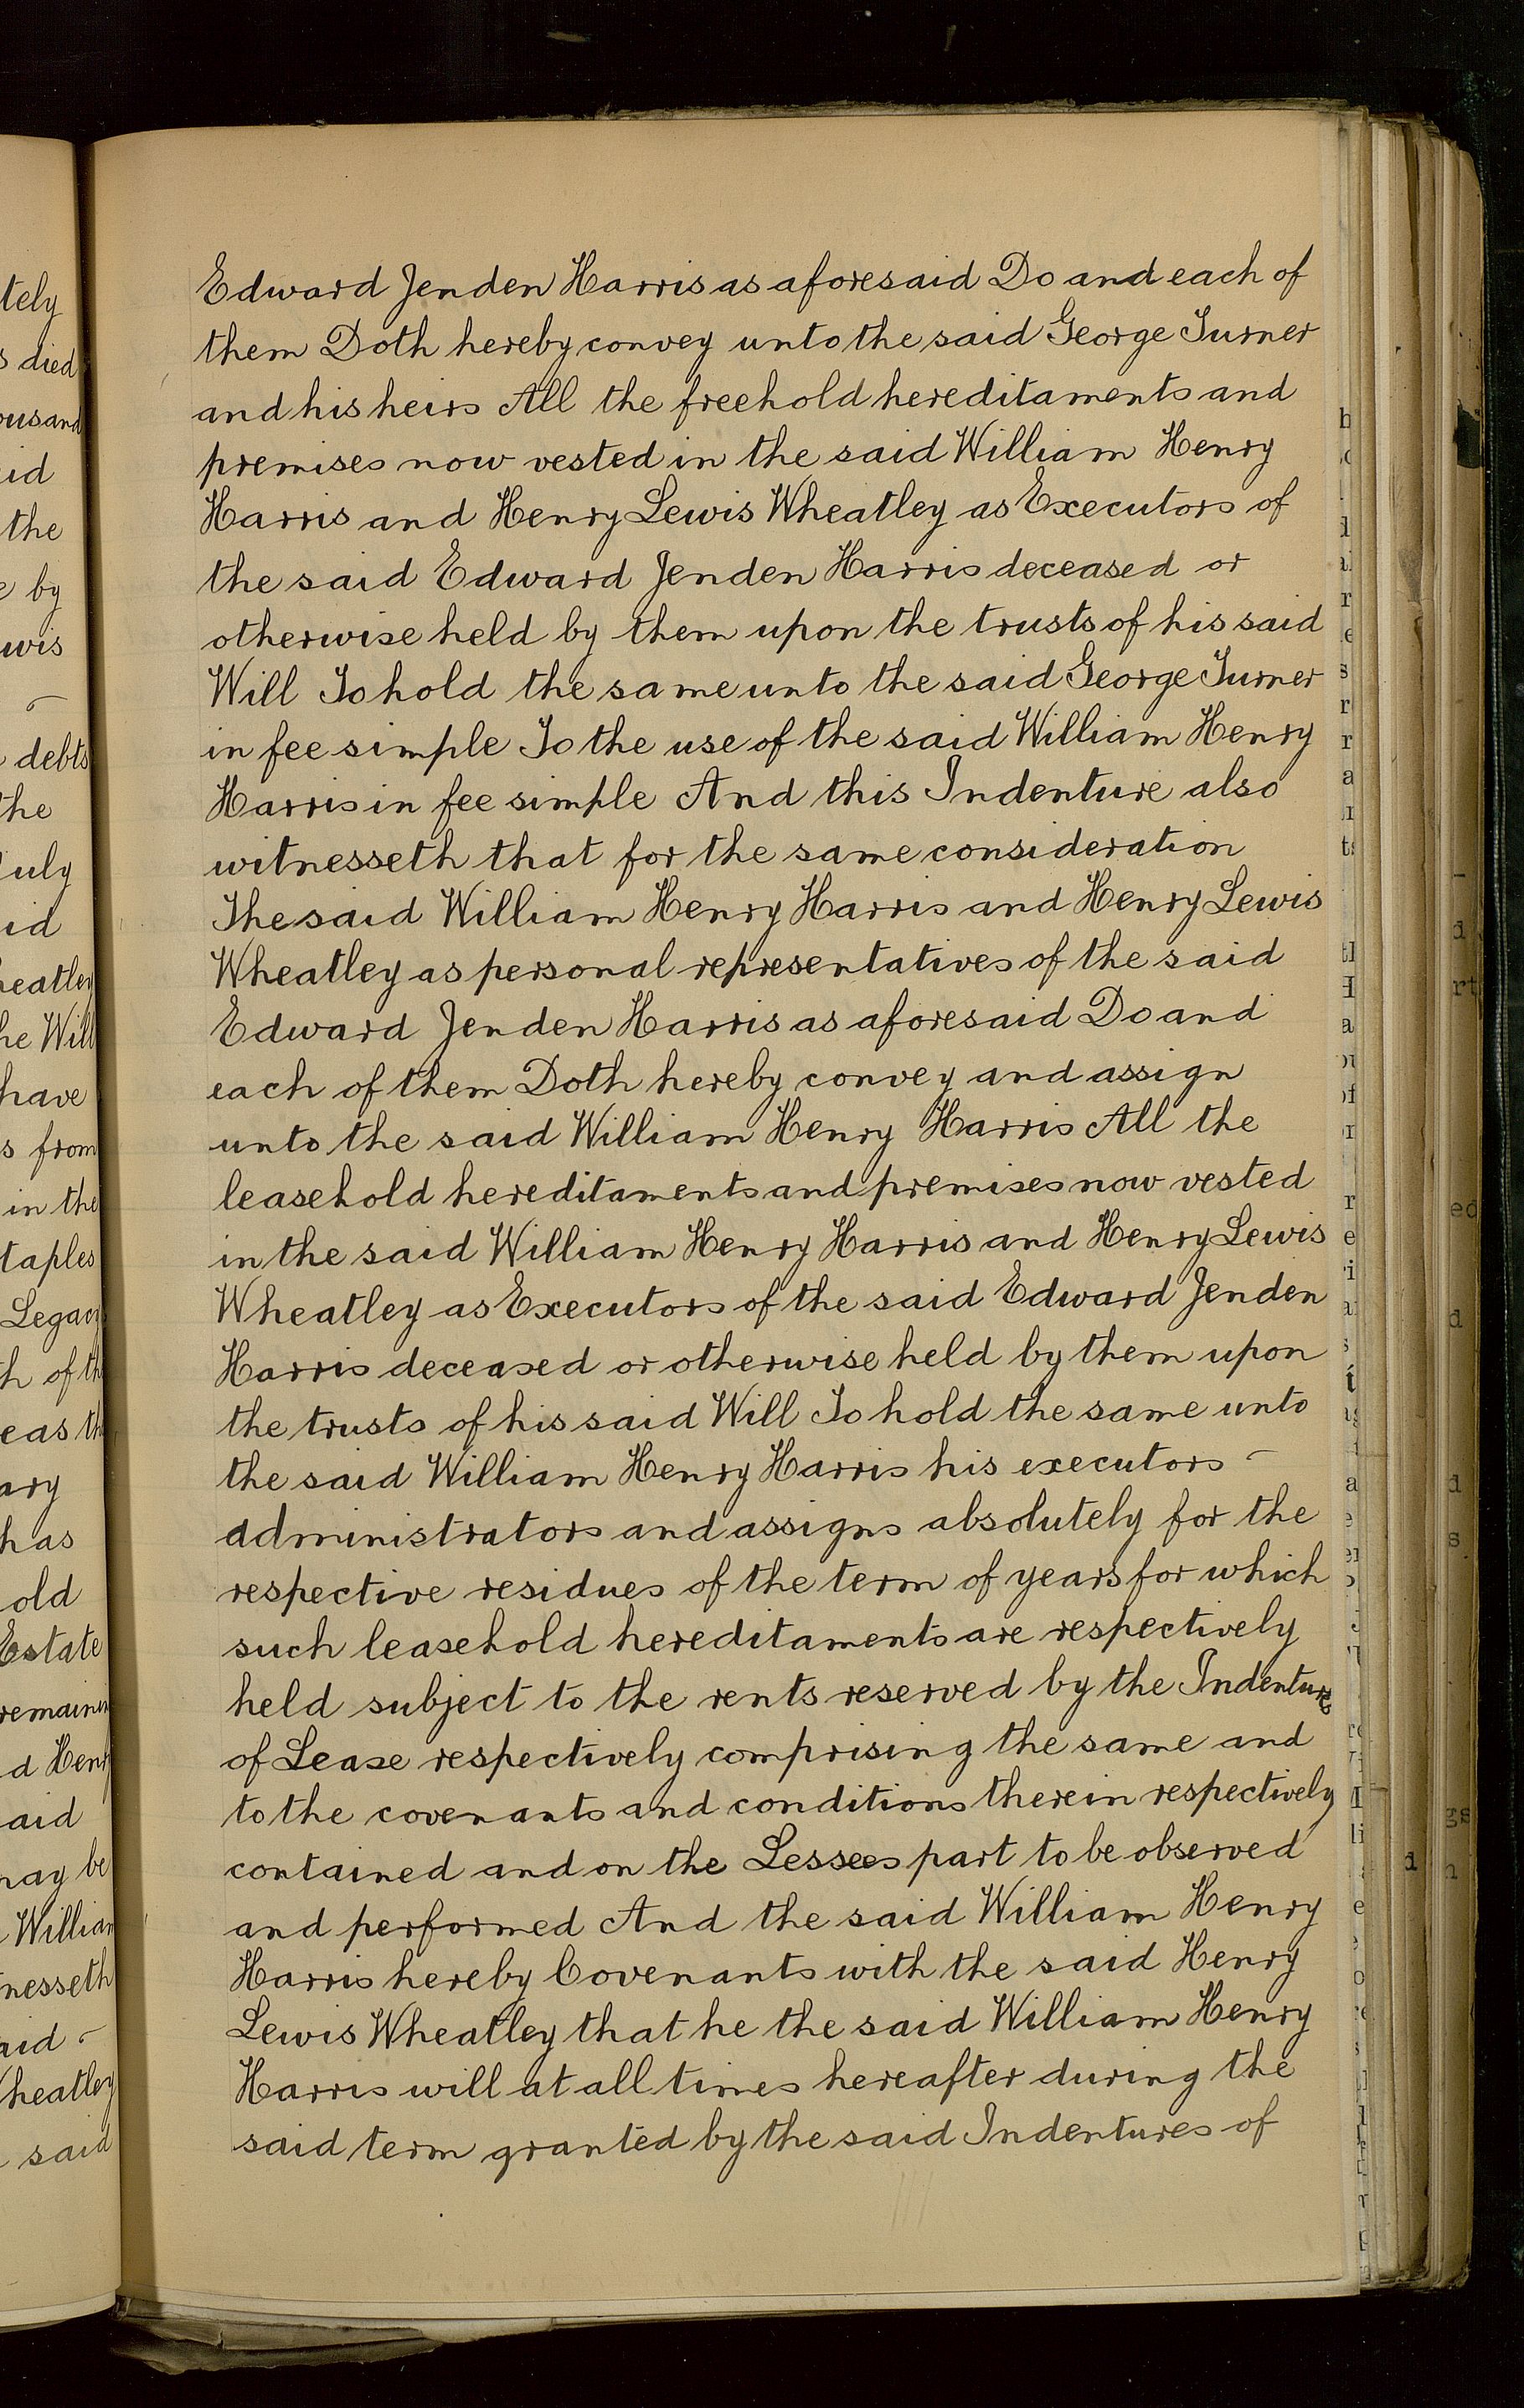 Edward Jenden Harris as aforesaid Do and each of
them Doth hereby convey unto the said George Turner
and his heirs All the freehold hereditaments and
premises now vested in the said William Henry
Harris and Henry Lewis Wheatley as Executors of
the said Edward Jenden Harris deceased or
otherwise held by them upon the trusts of his said
Will To hold the same unto the said George Turner
in fee simple To the use of the said William Henry
Harris in fee simple And this Indenture also
witnesseth that for the same consideration
The said William Henry Harris and Henry Lewis
Wheatley as personal representatives of the said
Edward Jenden Harris as aforesaid Do and
each of them Doth hereby convey and assign
unto the said William Henry Harris All the
leasehold hereditaments and premises now vested
in the said William Henry Harris and Henry Lewis
Wheatley as Executors of the said Edward Jenden
Harris deceased or otherwise held by them upon
the trusts of his said Will To hold the same unto
the said William Henry Harris his executors
administrators and assigns absolutely for the
respective residues of the term of years for which
such leasehold hereditaments are respectively
held subject to the rents reserved by the Indentures
of Lease respectively comprising the same and
to the covenants and conditions therein respectively
contained and on the Lessees part to be observed
and performed And the said William Henry
Harris hereby Covenants with the said Henry
Lewis Wheatley that he the said William Henry
Harris will at all times hereafter during the
said term granted by the said Indentures of